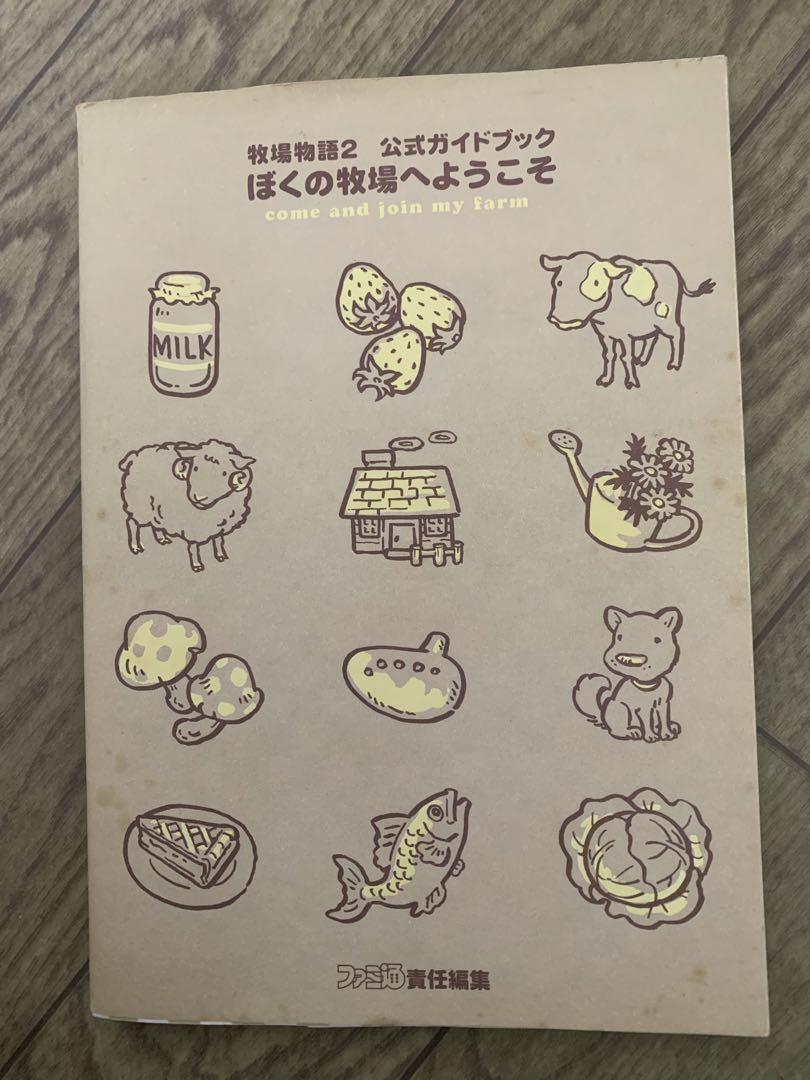 牧場物語2 公式ガイドブック
ぼくの牧場へようこそ
come and join my farm
MILK
ファミ通責任編集